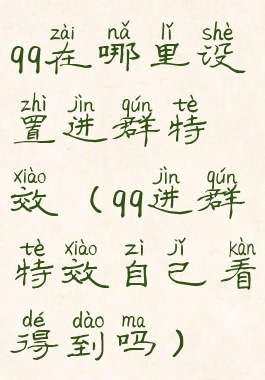 zài nǎ lǐ shè
qq在哪里设
zhì jìn qún tè
置进群特
xiào jìn qún
效（qq进群
tè xiào zì jǐ kàn
特效自己看
dé dào ma
得到吗）